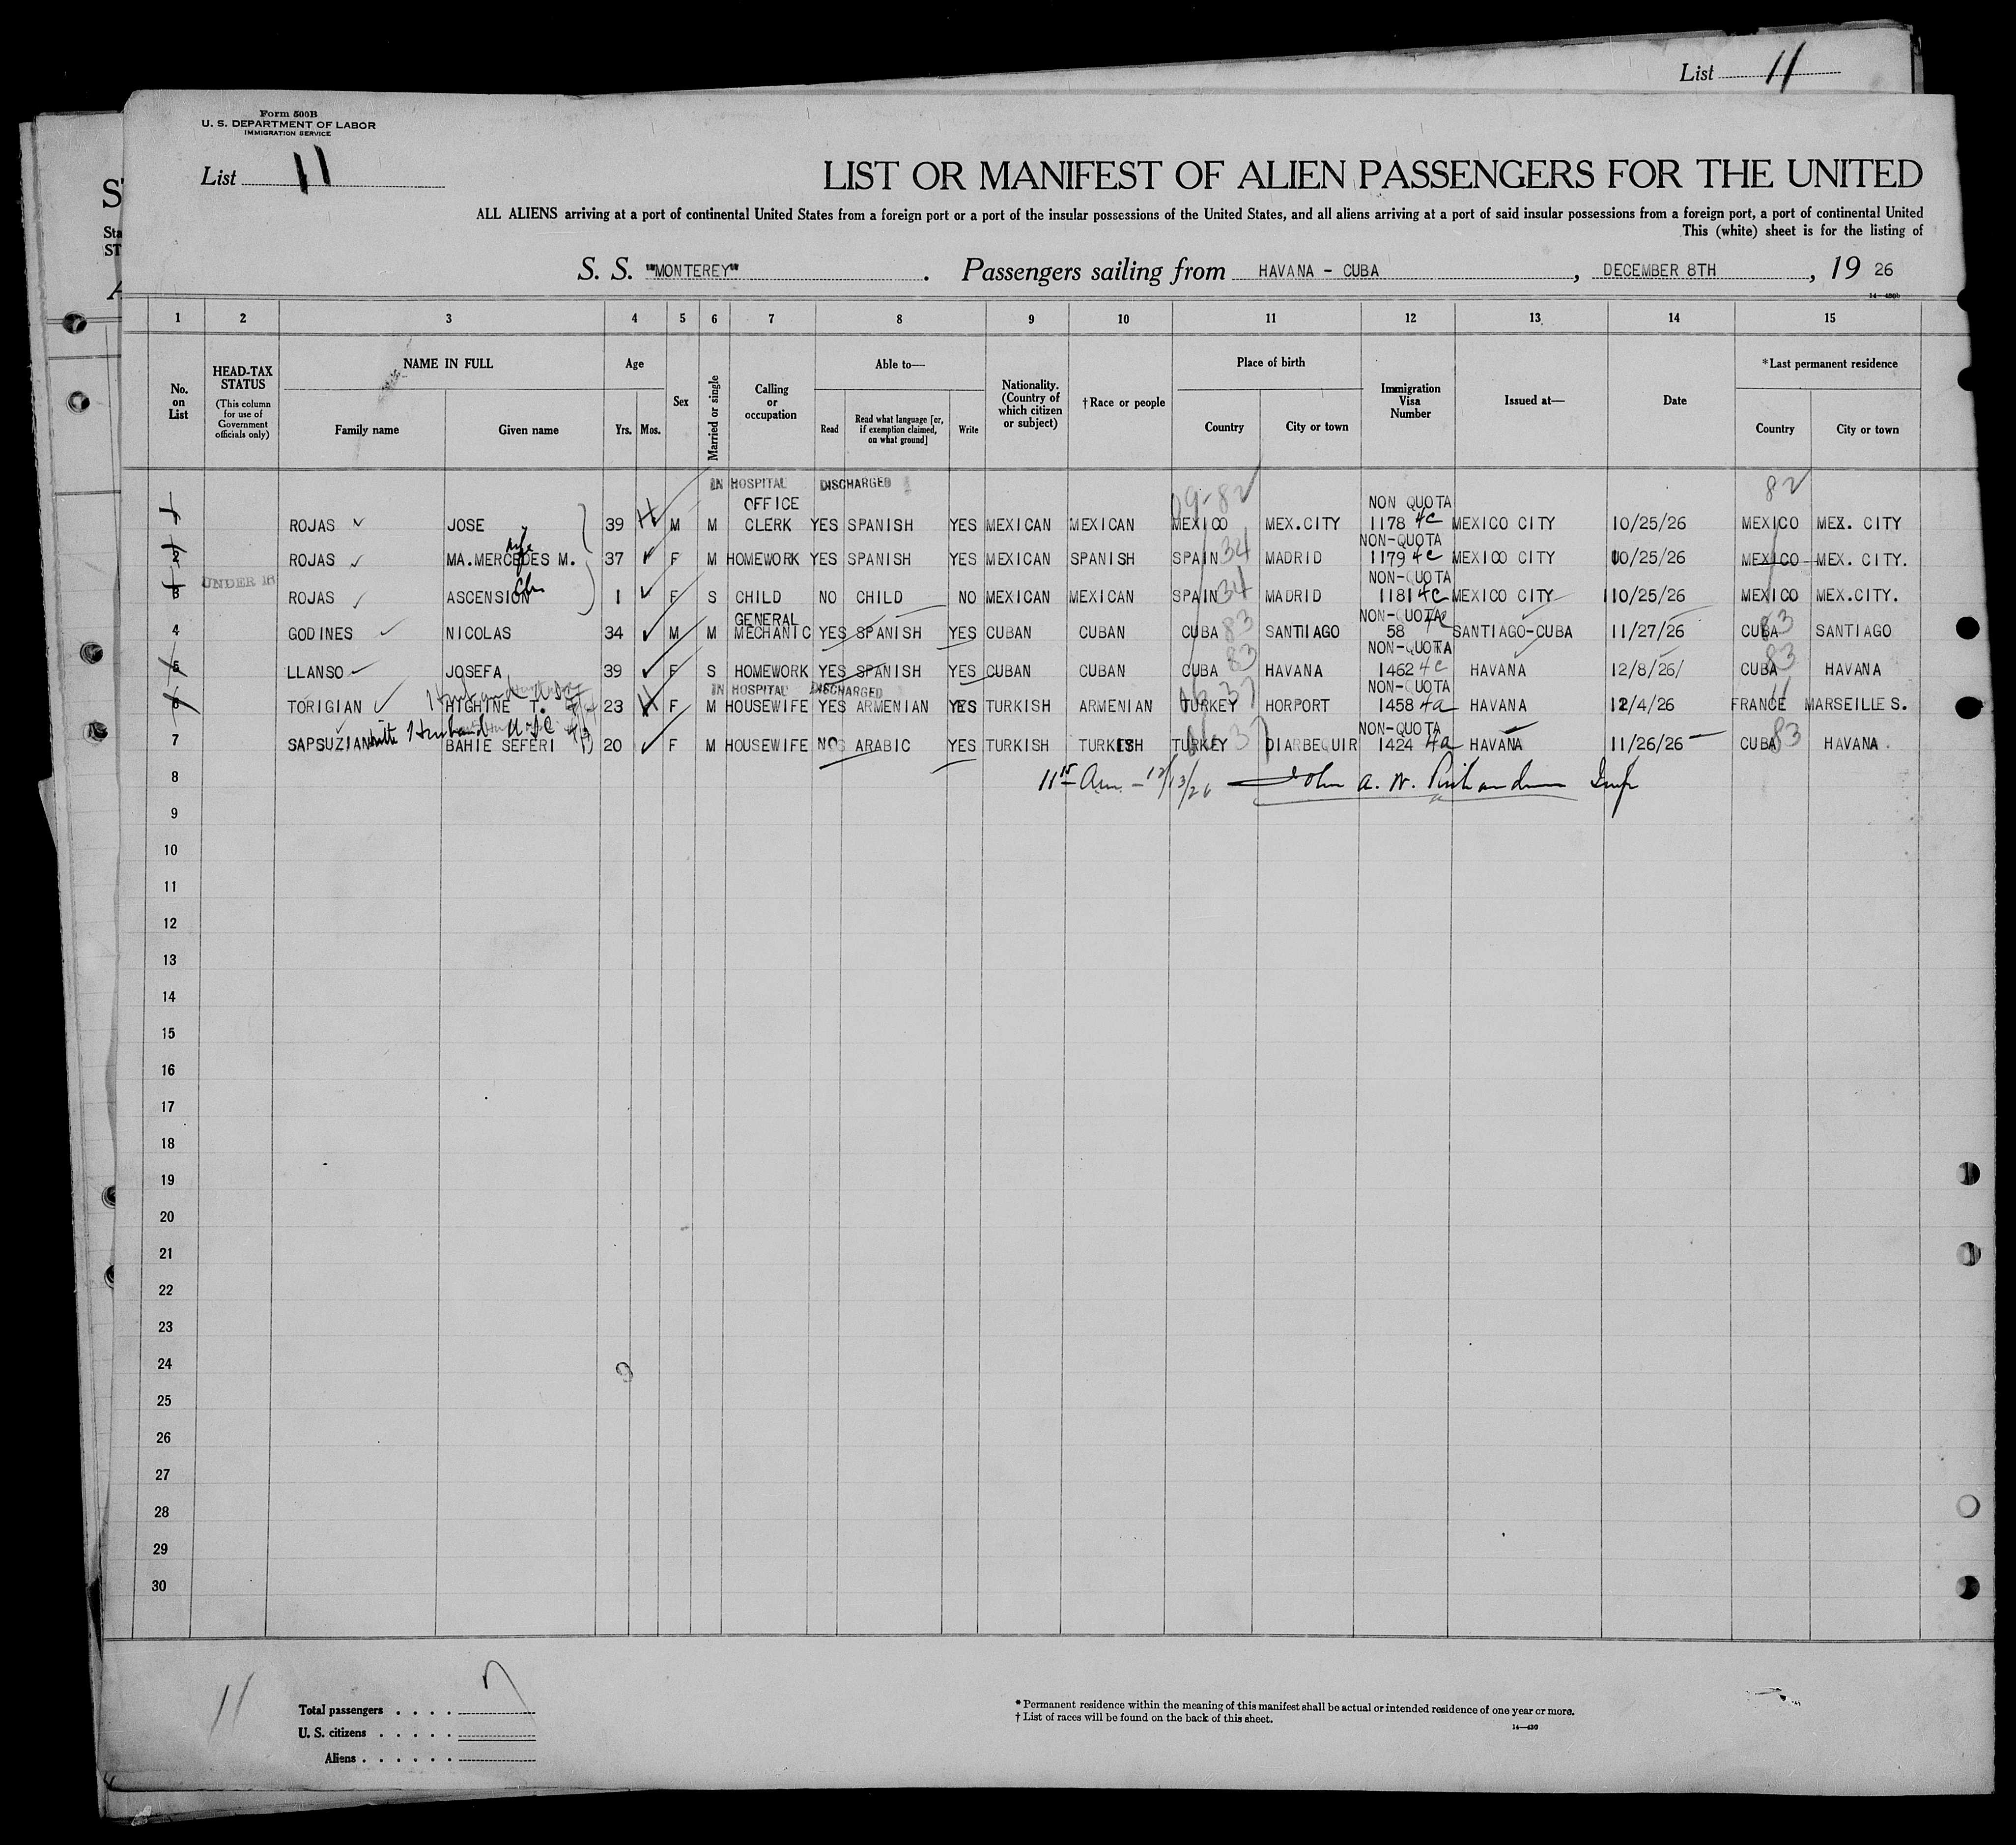 List 11
Form 500B
U. S. DEPARTMENT OF LABOR
IMMIGRATION SERVICE
List 11
LIST OR MANIFEST OF ALIEN PASSENGERS FOR THE UNITED
ALL ALIENS arriving at a port of continental United States from a foreign port or a port of the insular possessions of the United States, and all aliens arriving at a port of said insular possessions from a foreign port, a port of continental United
This (white) sheet is for the listing of
S. S. "MONTEREY" . Passengers sailing from HAVANA - CUBA , DECEMBER 8TH , 19 26
1 2 3 4 5 6 7 8 9 10 11 12 13 14 15
No. on List
HEAD-TAX STATUS (This column for use of Government officials only)
NAME IN FULL
Family name Given name
Age
Yrs. Mos.
Sex
Married or single
Calling or occupation
Able to—
Read
Read what language [or, if exemption claimed, on what ground]
Write
Nationality. (Country of which citizen or subject)
†Race or people
Place of birth
Country City or town
Immigration Visa Number
Issued at—
Date
*Last permanent residence
Country City or town
IN HOSPITAL DISCHARGED 09-82 82
OFFICE NON QUOTA
ROJAS JOSE 39 M M CLERK YES SPANISH YES MEXICAN MEXICAN MEXICO MEX.CITY 1178 4c MEXICO CITY 10/25/26 MEXICO MEX. CITY
wife NON-QUOTA
2 ROJAS MA.MERCEDES M. 37 F M HOMEWORK YES SPANISH YES MEXICAN SPANISH SPAIN 34 MADRID 1179 4c MEXICO CITY 10/25/26 MEXICO MEX. CITY.
UNDER 16 Ch NON-QUOTA
3 ROJAS ASCENSION 1 F S CHILD NO CHILD NO MEXICAN MEXICAN SPAIN 34 MADRID 1181 4c MEXICO CITY 10/25/26 MEXICO MEX.CITY.
GENERAL NON-QUOTA
4 GODINES NICOLAS 34 M M MECHANIC YES SPANISH YES CUBAN CUBAN CUBA 83 SANTIAGO 58 SANTIAGO-CUBA 11/27/26 CUBA 83 SANTIAGO
NON-QUOTA
5 LLANSO JOSEFA 39 F S HOMEWORK YES SPANISH YES CUBAN CUBAN CUBA 83 HAVANA 1462 4c HAVANA 12/8/26/ CUBA 83 HAVANA
Husband IN HOSPITAL DISCHARGED NON-QUOTA
6 TORIGIAN HIGHINE T. 23 F M HOUSEWIFE YES ARMENIAN YES TURKISH ARMENIAN TURKEY 37 HORPORT 1458 4a HAVANA 12/4/26 FRANCE 11 MARSEILLES.
Husband USC NON-QUOTA
7 SAPSUZIAN BAHIE SEFERI 20 F M HOUSEWIFE NO ARABIC YES TURKISH TURKISH TURKEY 37 DIARBEQUIR 1424 4a HAVANA 11/26/26 CUBA 83 HAVANA.
8 11 15 Am - 12/13/26 John A. W. Richardson Insp
9
10
11
12
13
14
15
16
17
18
19
20
21
22
23
24
25
26
27
28
29
30
11
Total passengers . . . . 7
U. S. citizens . . . . .
Aliens . . . . . .
* Permanent residence within the meaning of this manifest shall be actual or intended residence of one year or more.
† List of races will be found on the back of this sheet.
14—430